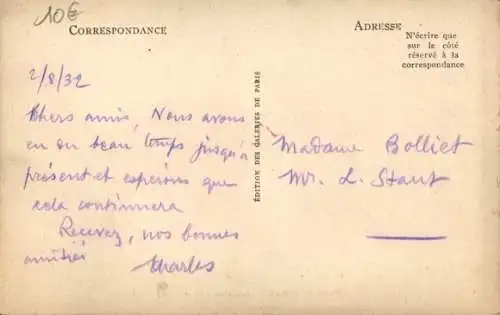 10€
CORRESPONDANCE
ADRESSE
N'écrire que
sur le côté
réservé à la
correspondance
2/8/32
Chers amis, Nous avons
eu du beau temps jusqu'à
présent et espérons que
cela continuera
Recevez, nos bonnes
amitiés
Charles
ÉDITION DES GALERIES DE PARIS
Madame Bolliet
Mr. L. Staut